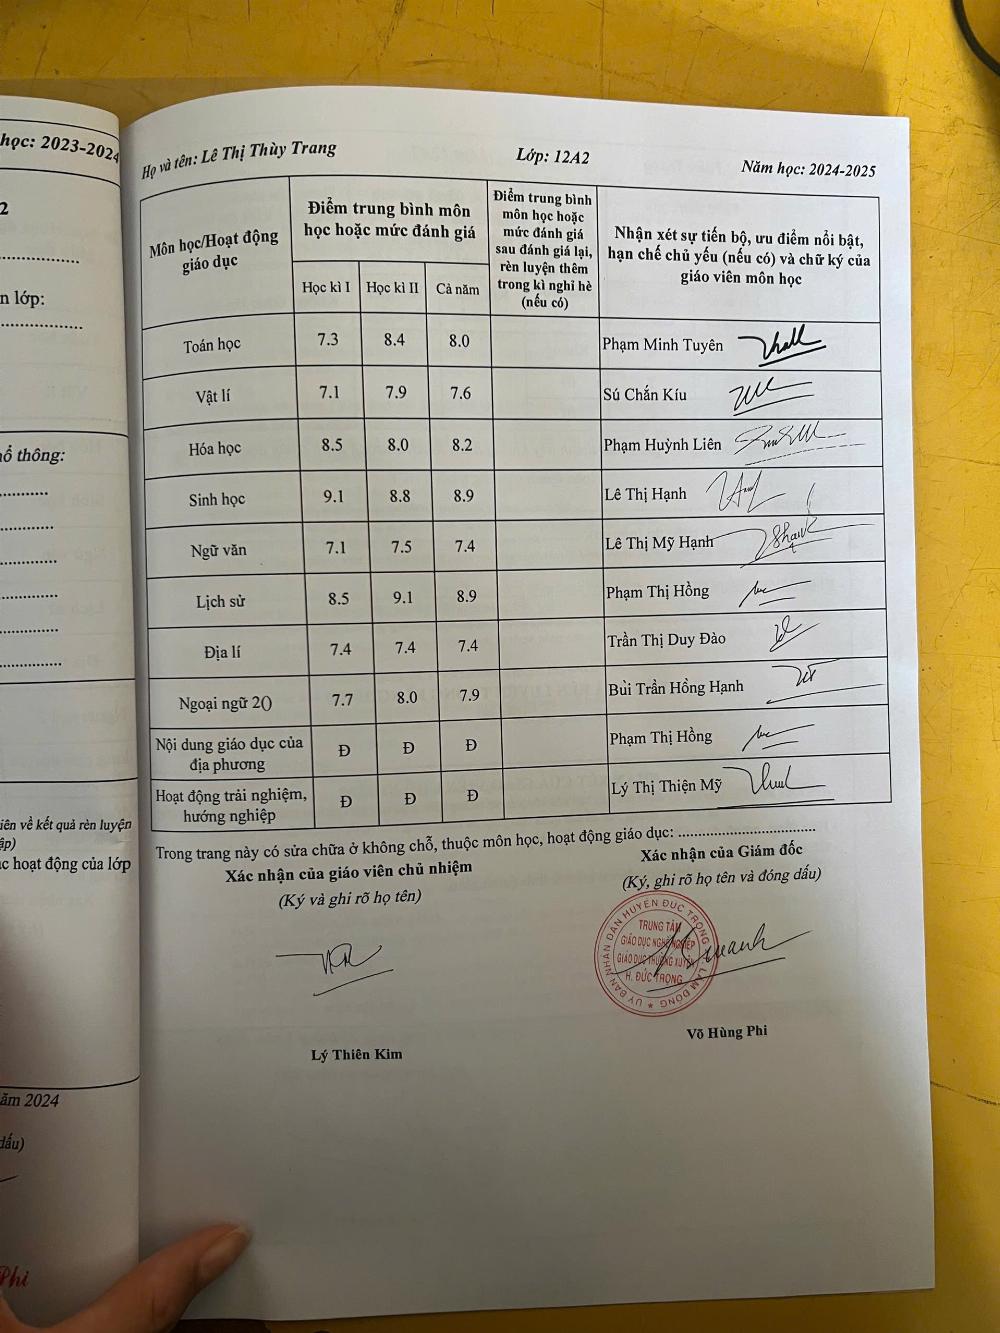 học: 2023-2024
2
n lớp:
ổ thông:
iên về kết quả rèn luyện
ập)
c hoạt động của lớp
ăm 2024
dấu)
Phi
Họ và tên: Lê Thị Thùy Trang Lớp: 12A2 Năm học: 2024-2025
Môn học/Hoạt động
giáo dục
Điểm trung bình môn
học hoặc mức đánh giá
Học kì I Học kì II Cả năm
Điểm trung bình
môn học hoặc
mức đánh giá
sau đánh giá lại,
rèn luyện thêm
trong kì nghỉ hè
(nếu có)
Nhận xét sự tiến bộ, ưu điểm nổi bật,
hạn chế chủ yếu (nếu có) và chữ ký của
giáo viên môn học
Toán học 7.3 8.4 8.0 Phạm Minh Tuyên
Vật lí 7.1 7.9 7.6 Sú Chắn Kíu
Hóa học 8.5 8.0 8.2 Phạm Huỳnh Liên
Sinh học 9.1 8.8 8.9 Lê Thị Hạnh
Ngữ văn 7.1 7.5 7.4 Lê Thị Mỹ Hạnh
Lịch sử 8.5 9.1 8.9 Phạm Thị Hồng
Địa lí 7.4 7.4 7.4 Trần Thị Duy Đào
Ngoại ngữ 2() 7.7 8.0 7.9 Bùi Trần Hồng Hạnh
Nội dung giáo dục của
địa phương Đ Đ Đ Phạm Thị Hồng
Hoạt động trải nghiệm,
hướng nghiệp Đ Đ Đ Lý Thị Thiện Mỹ
Trong trang này có sửa chữa ở không chỗ, thuộc môn học, hoạt động giáo dục: ....................................
Xác nhận của giáo viên chủ nhiệm
(Ký và ghi rõ họ tên)
Lý Thiên Kim
Xác nhận của Giám đốc
(Ký, ghi rõ họ tên và đóng dấu)
ỦY BAN NHÂN DÂN HUYỆN ĐỨC TRỌNG
LÂM ĐỒNG
TRUNG TÂM
GIÁO DỤC NGHỀ NGHIỆP
GIÁO DỤC THƯỜNG XUYÊN
H. ĐỨC TRỌNG
Võ Hùng Phi